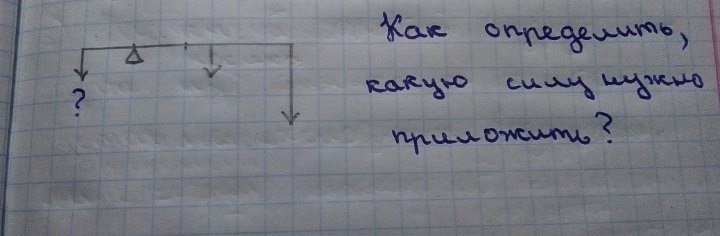 Как определить,
какую силу нужно
приложить?
?